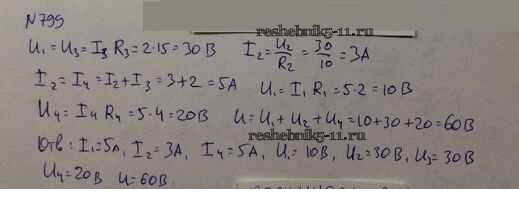 N 799
reshebnik5-11.ru
U₁ = U₃ = I₃ R₃ = 2·15 = 30 В   I₂ = U₂/R₂ = 30/10 = 3А
I₂ = I₄ = I₂ + I₃ = 3 + 2 = 5А   U₁ = I₁ R₁ = 5·2 = 10В
U₄ = I₄ R₄ = 5·4 = 20В   U = U₁ + U₂ + U₄ = 10 + 30 + 20 = 60В
reshebnik5-11.ru
Отв: I₁ = 5А, I₂ = 3А, I₄ = 5А, U₁ = 10В, U₂ = 30В, U₃ = 30В
U₄ = 20В U = 60В